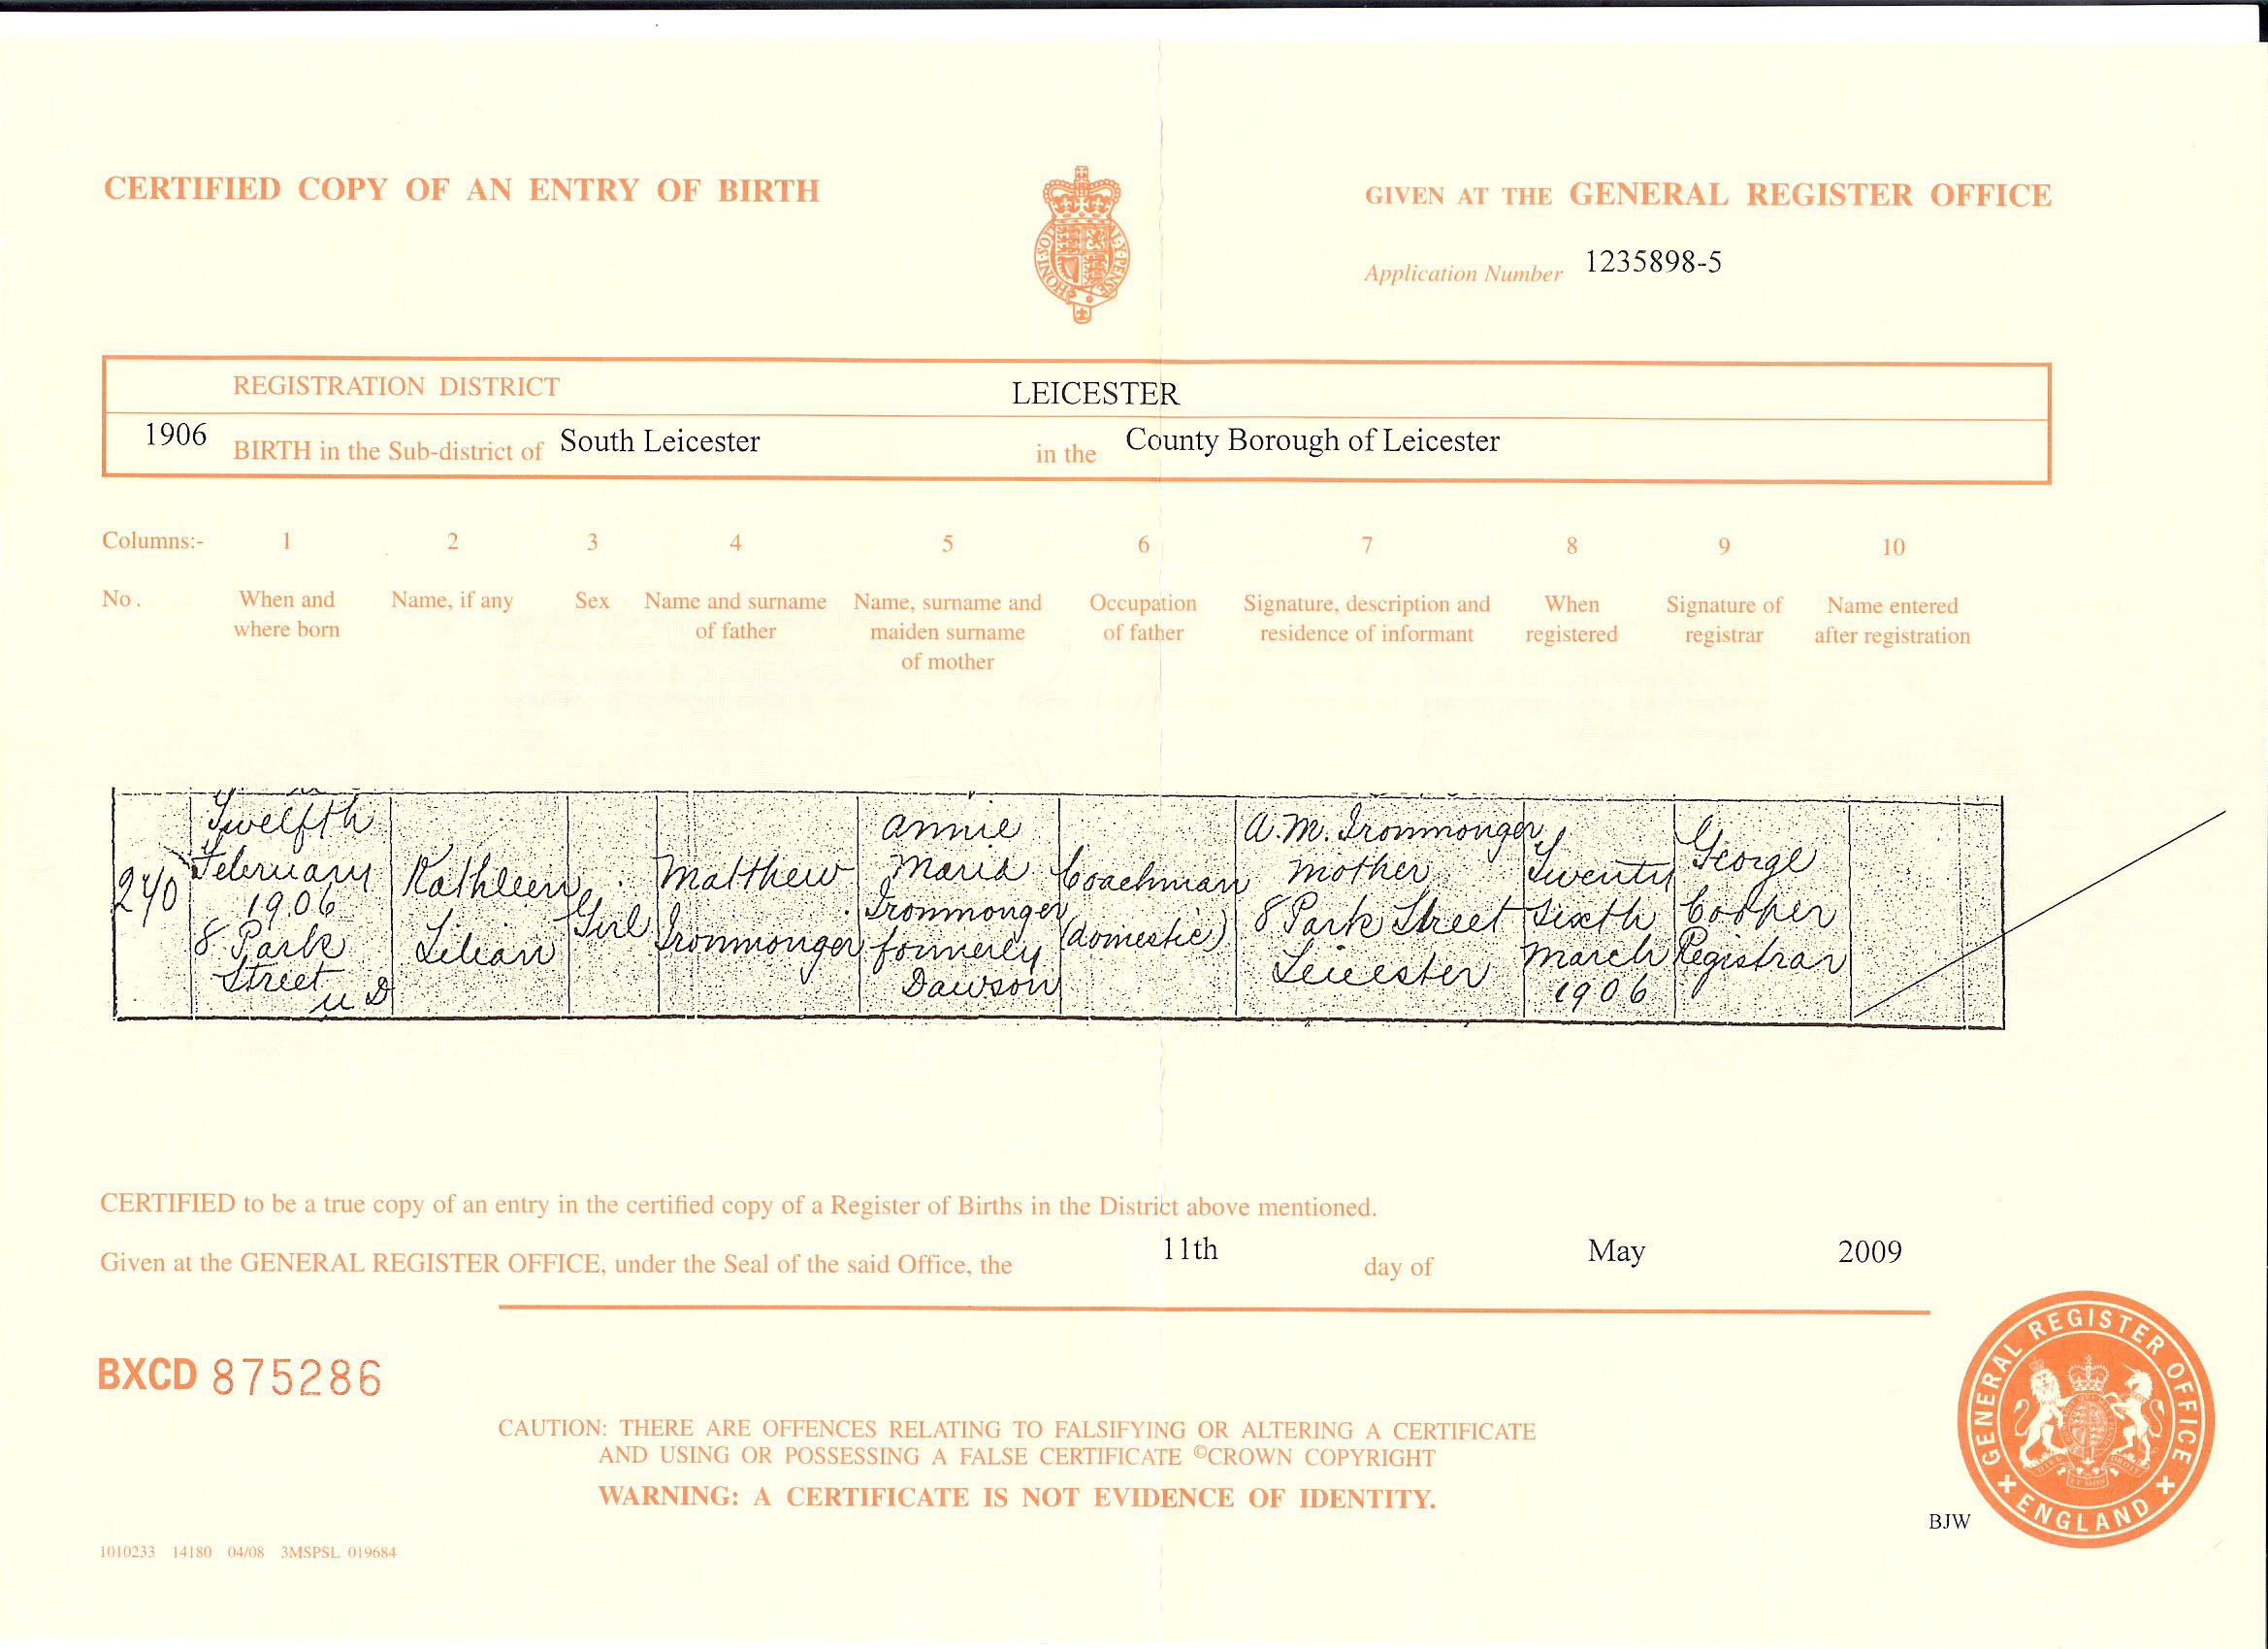 CERTIFIED COPY OF AN ENTRY OF BIRTH
GIVEN AT THE GENERAL REGISTER OFFICE
Application Number 1235898-5
HONI·SOI AL·Y·PENSE
REGISTRATION DISTRICT LEICESTER
1906 BIRTH in the Sub-district of South Leicester in the County Borough of Leicester
Columns:- 1 2 3 4 5 6 7 8 9 10
No. When and where born
Name, if any
Sex
Name and surname of father
Name, surname and maiden surname of mother
Occupation of father
Signature, description and residence of informant
When registered
Signature of registrar
Name entered after registration
240
Twelfth
February
1906
8 Park
Street
U D
Kathleen
Lilian
Girl
Matthew
Ironmonger
Annie
Maria
Ironmonger
formerly
Dawson
Coachman
(domestic)
A. M. Ironmonger
Mother
8 Park Street
Leicester
Twenty
Sixth
March
1906
George
Cooper
Registrar
CERTIFIED to be a true copy of an entry in the certified copy of a Register of Births in the District above mentioned.
Given at the GENERAL REGISTER OFFICE, under the Seal of the said Office, the 11th day of May 2009
BXCD 875286
CAUTION: THERE ARE OFFENCES RELATING TO FALSIFYING OR ALTERING A CERTIFICATE
AND USING OR POSSESSING A FALSE CERTIFICATE ©CROWN COPYRIGHT
WARNING: A CERTIFICATE IS NOT EVIDENCE OF IDENTITY.
GENERAL REGISTER OFFICE
ENGLAND
BJW
1010233 14180 04/08 3MSPSL 019684